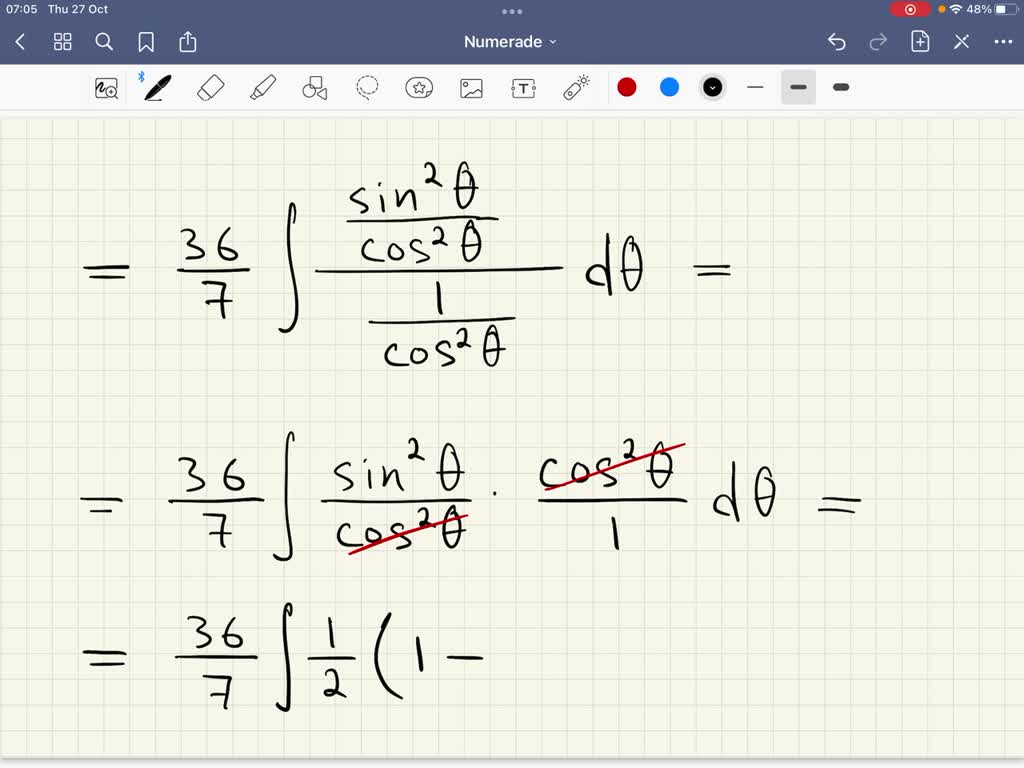 07:05 Thu 27 Oct 48%
Numerade
T
= 36/7 ∫ (sin²θ/cos²θ)/(1/cos²θ) dθ =
= 36/7 ∫ sin²θ/cos²θ · cos²θ/1 dθ =
= 36/7 ∫ 1/2 (1 −